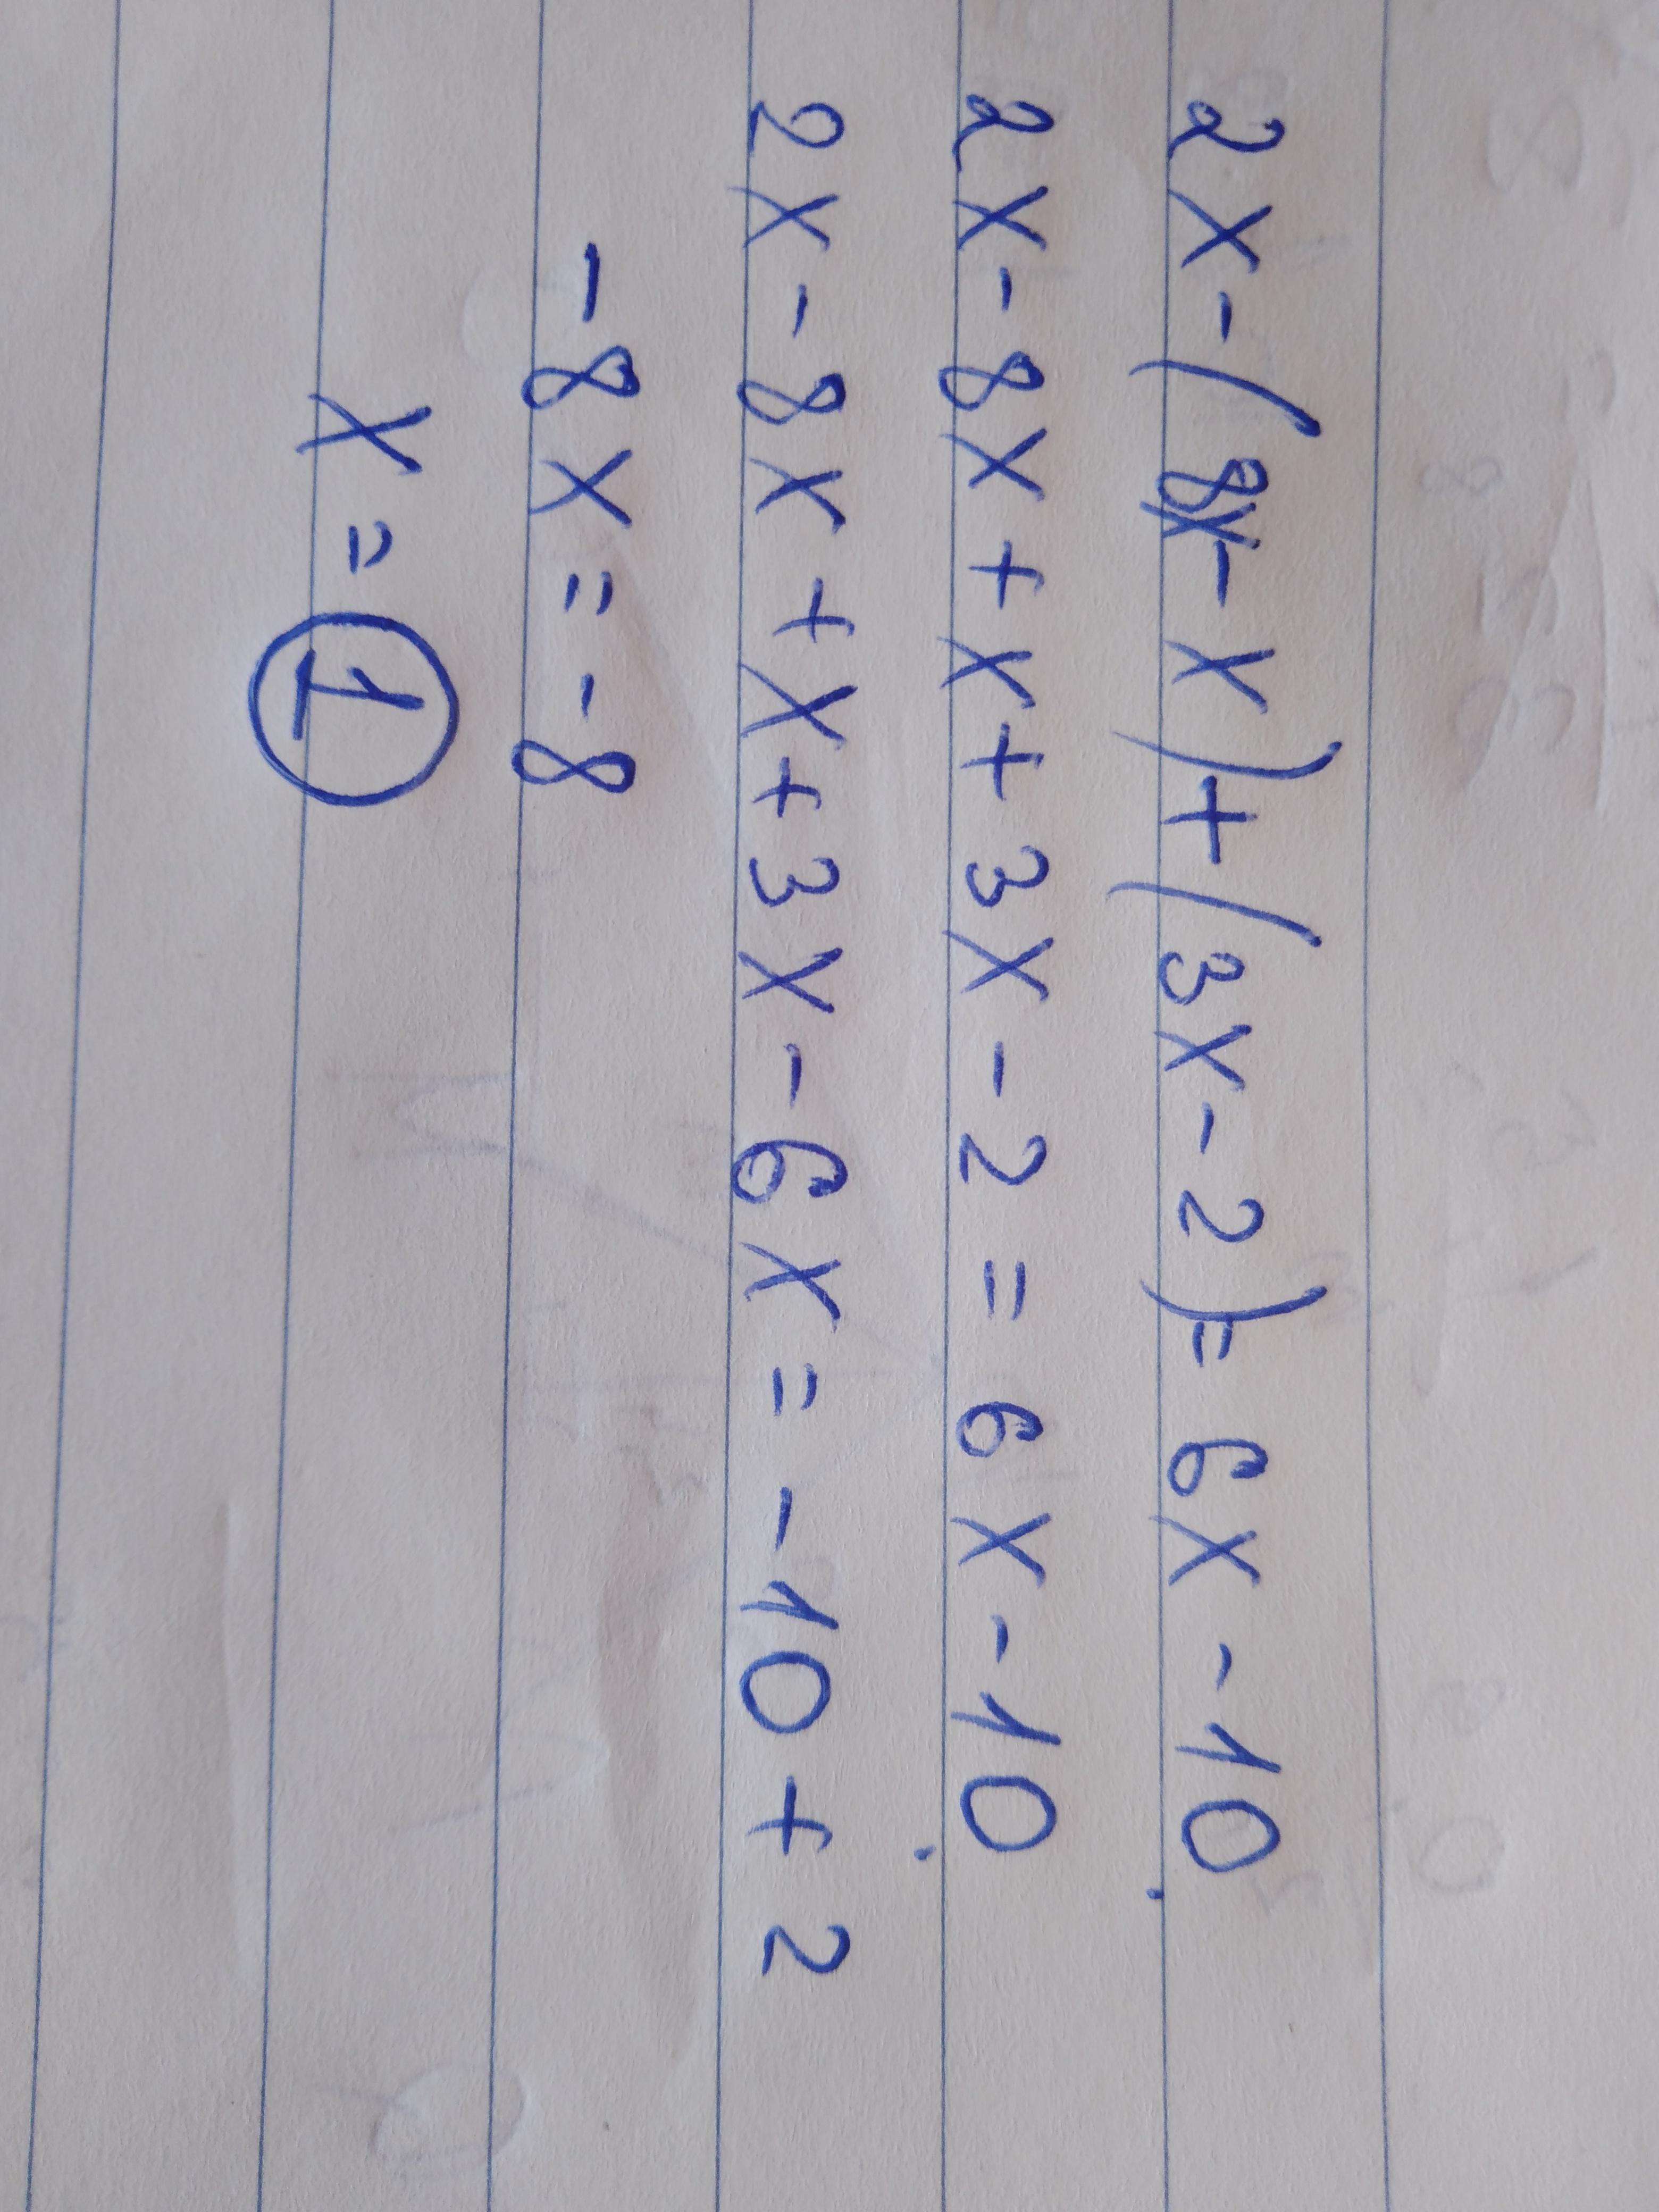 2x-(8x-x)+(3x-2)=6x-10.
2x-8x+x+3x-2=6x-10.
2x-8x+x+3x-6x=-10+2
-8x=-8
x=1